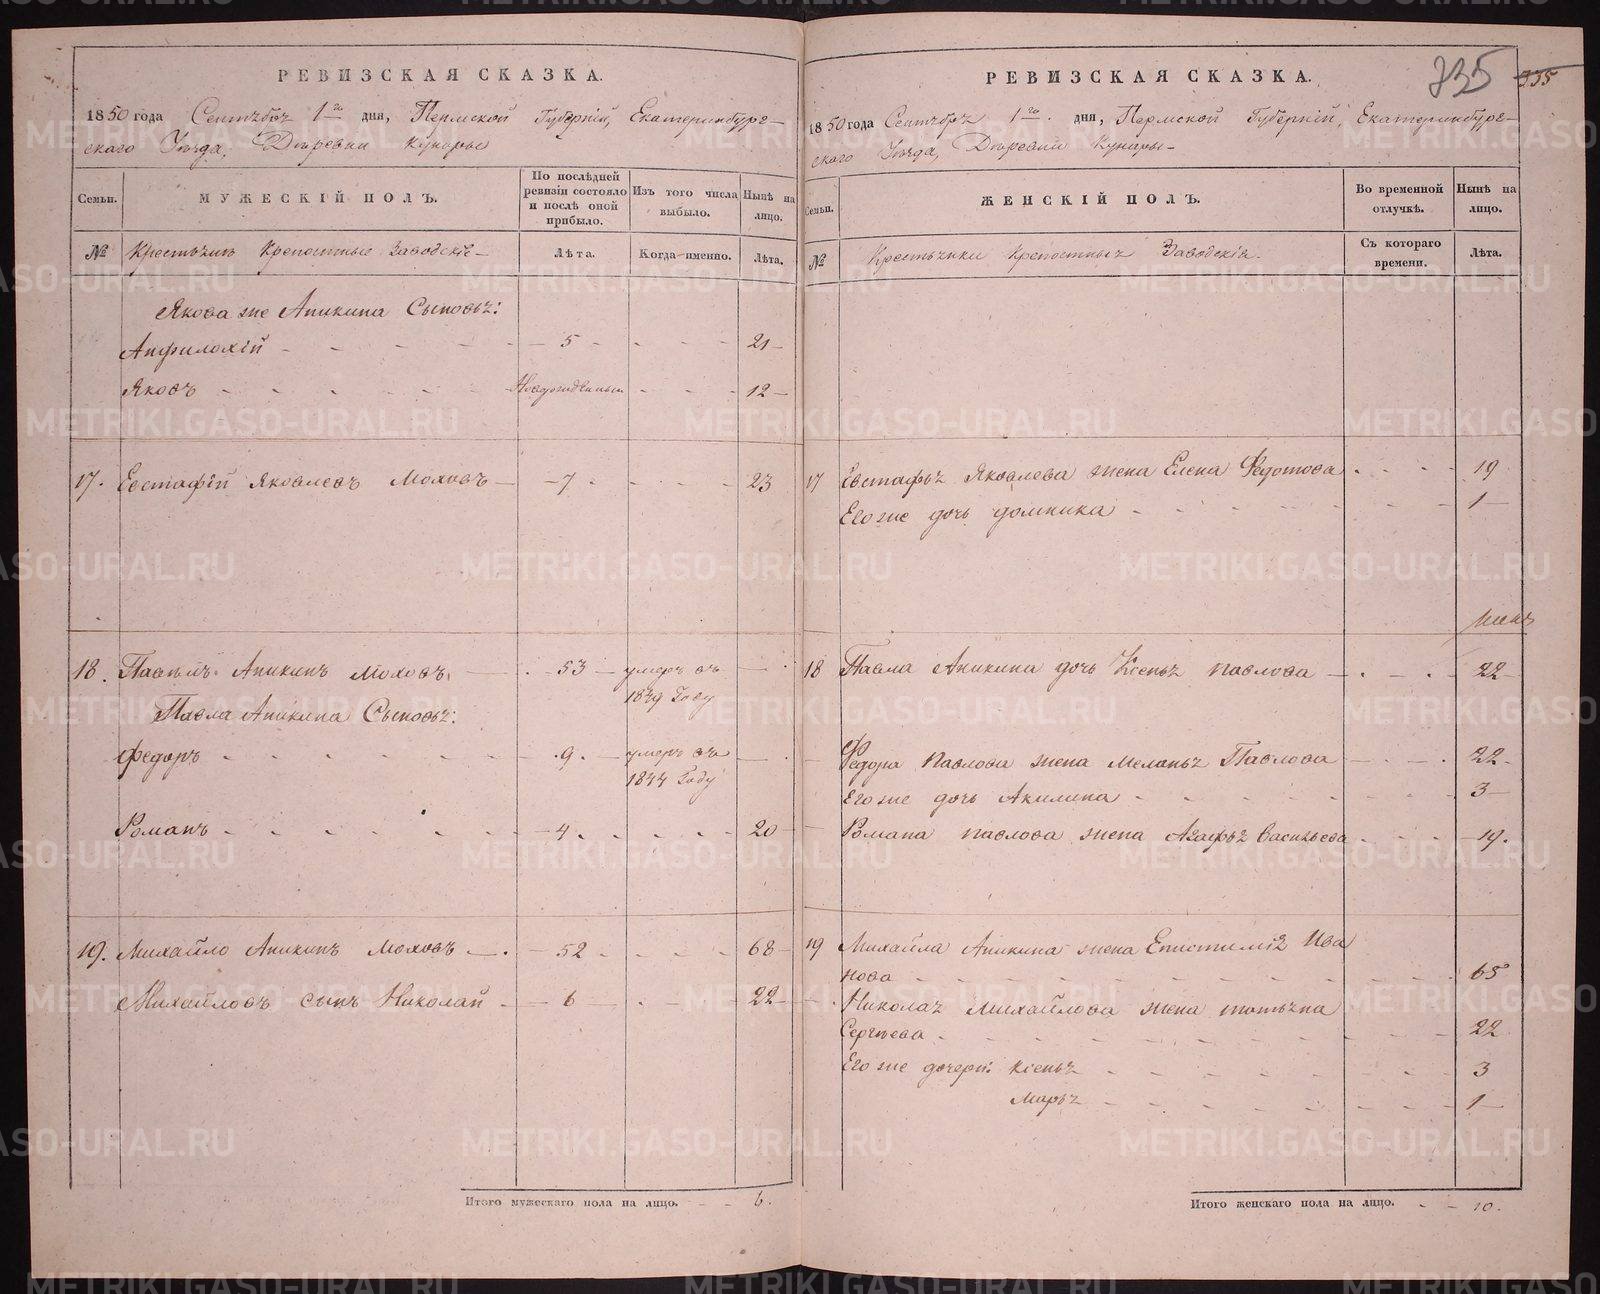 РЕВИЗСКАЯ СКАЗКА.
1850 года Сентября 1го дня, Пермской Губерніи, Екатеринбург-
скаго Уѣзда, Деревни Кунары
Семьи.
МУЖЕСКІЙ ПОЛЪ.
По послѣдней ревизіи состояло и послѣ оной прибыло.
Изъ того числа выбыло.
Нынѣ на лицо.
№
Крестьяне Крепостные Заводскіе
Лѣта.
Когда именно.
Лѣта.
Якова же Аникина Сыновья:
Анфилохій 5 21
Яковъ Новорожденный 12
17. Евстафій Яковлевъ Моховъ 7 23
18. Павелъ Аникинъ Моховъ 53 умеръ въ
1849 Году
Павла Аникина Сыновья:
Федоръ 9 умеръ въ
1844 Году
Романъ 4 20
19. Михайло Аникинъ Моховъ 52 68
Михайловъ сынъ Николай 6 22
Итого мужескаго пола на лицо. 6.
735
335
РЕВИЗСКАЯ СКАЗКА.
1850 года Сентября 1го дня, Пермской Губерніи, Екатеринбург-
скаго Уѣзда, Деревни Кунары
Семьи.
ЖЕНСКІЙ ПОЛЪ.
Во временной отлучкѣ.
Нынѣ на лицо.
№
Крестьянки Крепостныя Заводскія.
Съ котораго времени.
Лѣта.
17 Евстафья Яковлева жена Елена Федотова 19
Его же дочь домника 1
18 Павла Аникина дочь Ксенья павлова 22
Федора Павлова жена Меланья Павлова 22
Его же дочь Акилина 3
Романа павлова жена Агафья Васильева 19.
19 Михайла Аникина жена Епистимія Ива
нова 65
Николая Михайлова жена татьяна
Сергѣева 22
Его же дочери: Ксенья 3
Марья 1
Итого женскаго пола на лицо. 10.
METRIKI.GASO-URAL.RU